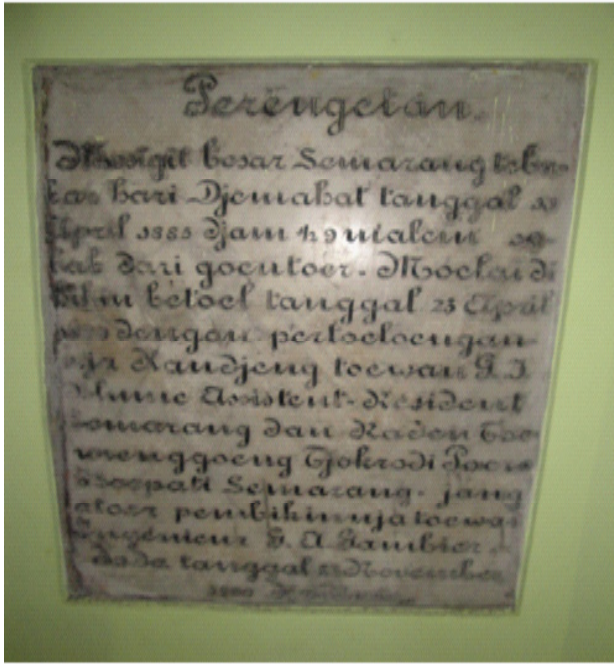 Perengetan.
Mesigit besar Semarang
hari Djemahat tanggal
April 1885 djam ½ 9 malem
dari goentoer. Moelai di
betoel tanggal 23 April
dengan pertoeloengan
Kandjeng toewan G. I.
Blume Assistent-Resident
Semarang dan Raden Toe-
menggoeng Tjokrodi Poero
Boepati Semarang. jang
atoer pembikinnja toewan
Ingenieur G. A. Gambier.
tanggal November